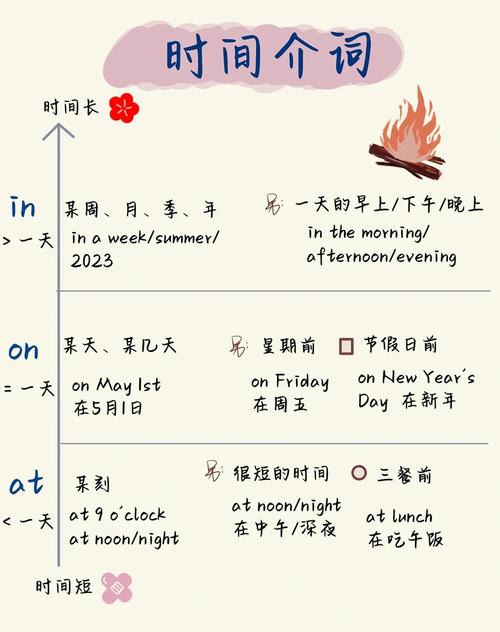 时间介词
时间长
in
> 一天
某周、月、季、年
in a week/summer/
2023
另: 一天的早上/下午/晚上
in the morning/
afternoon/evening
on
= 一天
某天、某几天
on May 1st
在5月1日
另: 星期前
on Friday
在周五
节假日前
on New Year's
Day 在新年
at
< 一天
某刻
at 9 o'clock
at noon/night
另: 很短的时间
at noon/night
在中午/深夜
三餐前
at lunch
在吃午饭
时间短